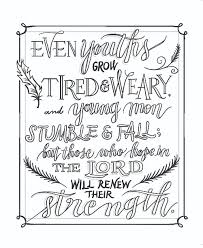 EVEN youths
GROW
TIRED & WEARY,
and young men
STUMBLE & FALL;
but those who hope in
THE LORD
WILL RENEW
THEIR
strength.